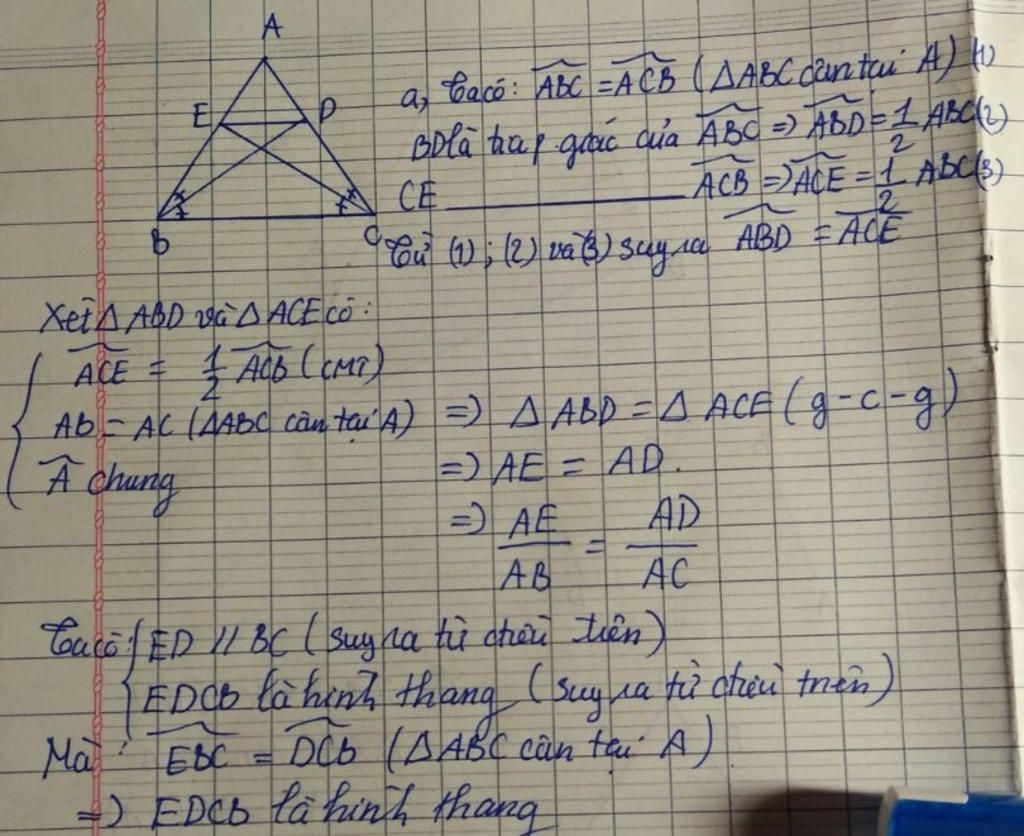 A
E D
B C
a, Ta có: ABC = ACB (ΔABC cân tại A) (1)
BD là tia p. giác của ABC => ABD = 1/2 ABC (2)
CE ________ ACB => ACE = 1/2 ABC (3)
Từ (1); (2) và (3) suy ra ABD = ACE
Xét Δ ABD và Δ ACE có:
ACE = 1/2 ACB (CMT)
AB = AC (ΔABC cân tại A) => Δ ABD = Δ ACE (g-c-g)
A chung => AE = AD.
=> AE/AB = AD/AC
Ta có: { ED // BC (suy ra từ chiều trên)
EDCB là hình thang (suy ra từ chiều trên)
Mà: EBC = DCB (ΔABC cân tại A)
=> EDCB là hình thang